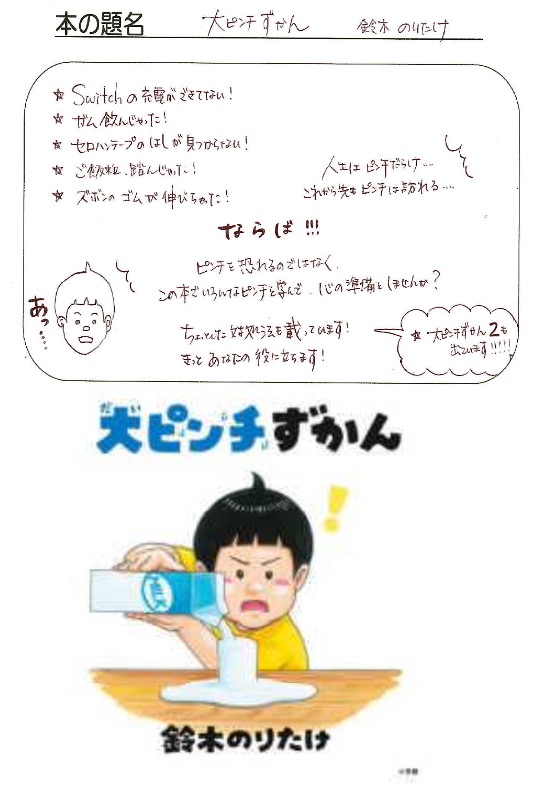 本の題名 大ピンチずかん 鈴木 のりたけ
☆ Switchの充電ができてない!
☆ ガム飲んじゃった!
☆ セロハンテープのはしが見つからない!
☆ ご飯粒、踏んじゃった!
☆ ズボンのゴムが伸びちゃった!
人生はピンチだらけ…
これから先もピンチは訪れる…
ならば!!!
ピンチを恐れるのではなく、
この本でいろんなピンチを学んで、心の準備をしませんか?
あっ…
ちょっとした対処法も載っています!
きっとあなたの役に立ちます!
☆ 大ピンチずかん2も
出ています!!!!!
だい
大ピンチずかん
!
MILK
鈴木のりたけ